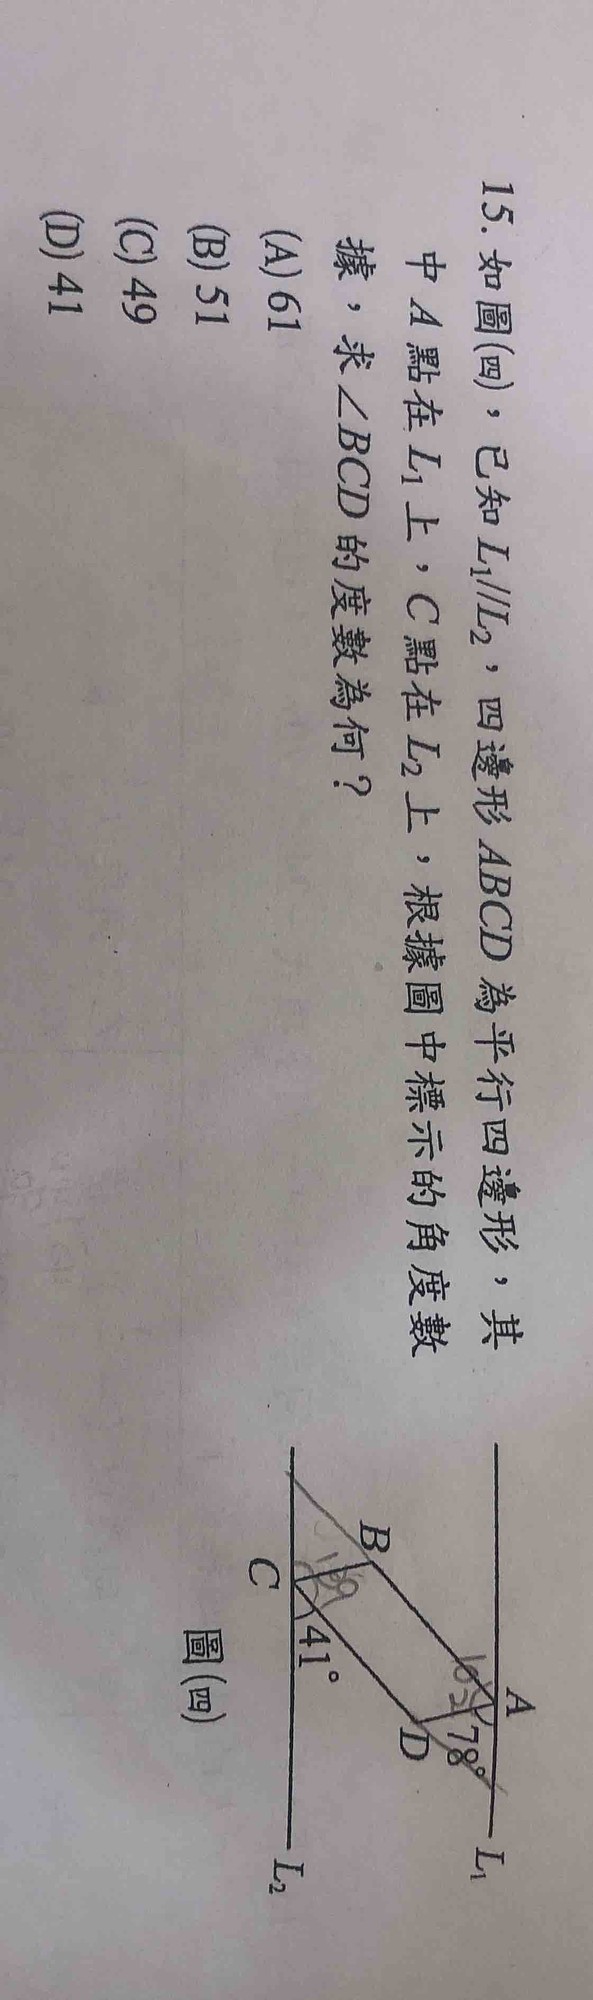 15. 如圖(四)，已知 L₁//L₂，四邊形 ABCD 為平行四邊形，其
中 A 點在 L₁ 上，C 點在 L₂ 上，根據圖中標示的角度數
據，求∠BCD 的度數為何？
(A) 61
(B) 51
(C) 49
(D) 41
A
L₁
78°
B
D
41°
C
L₂
圖(四)